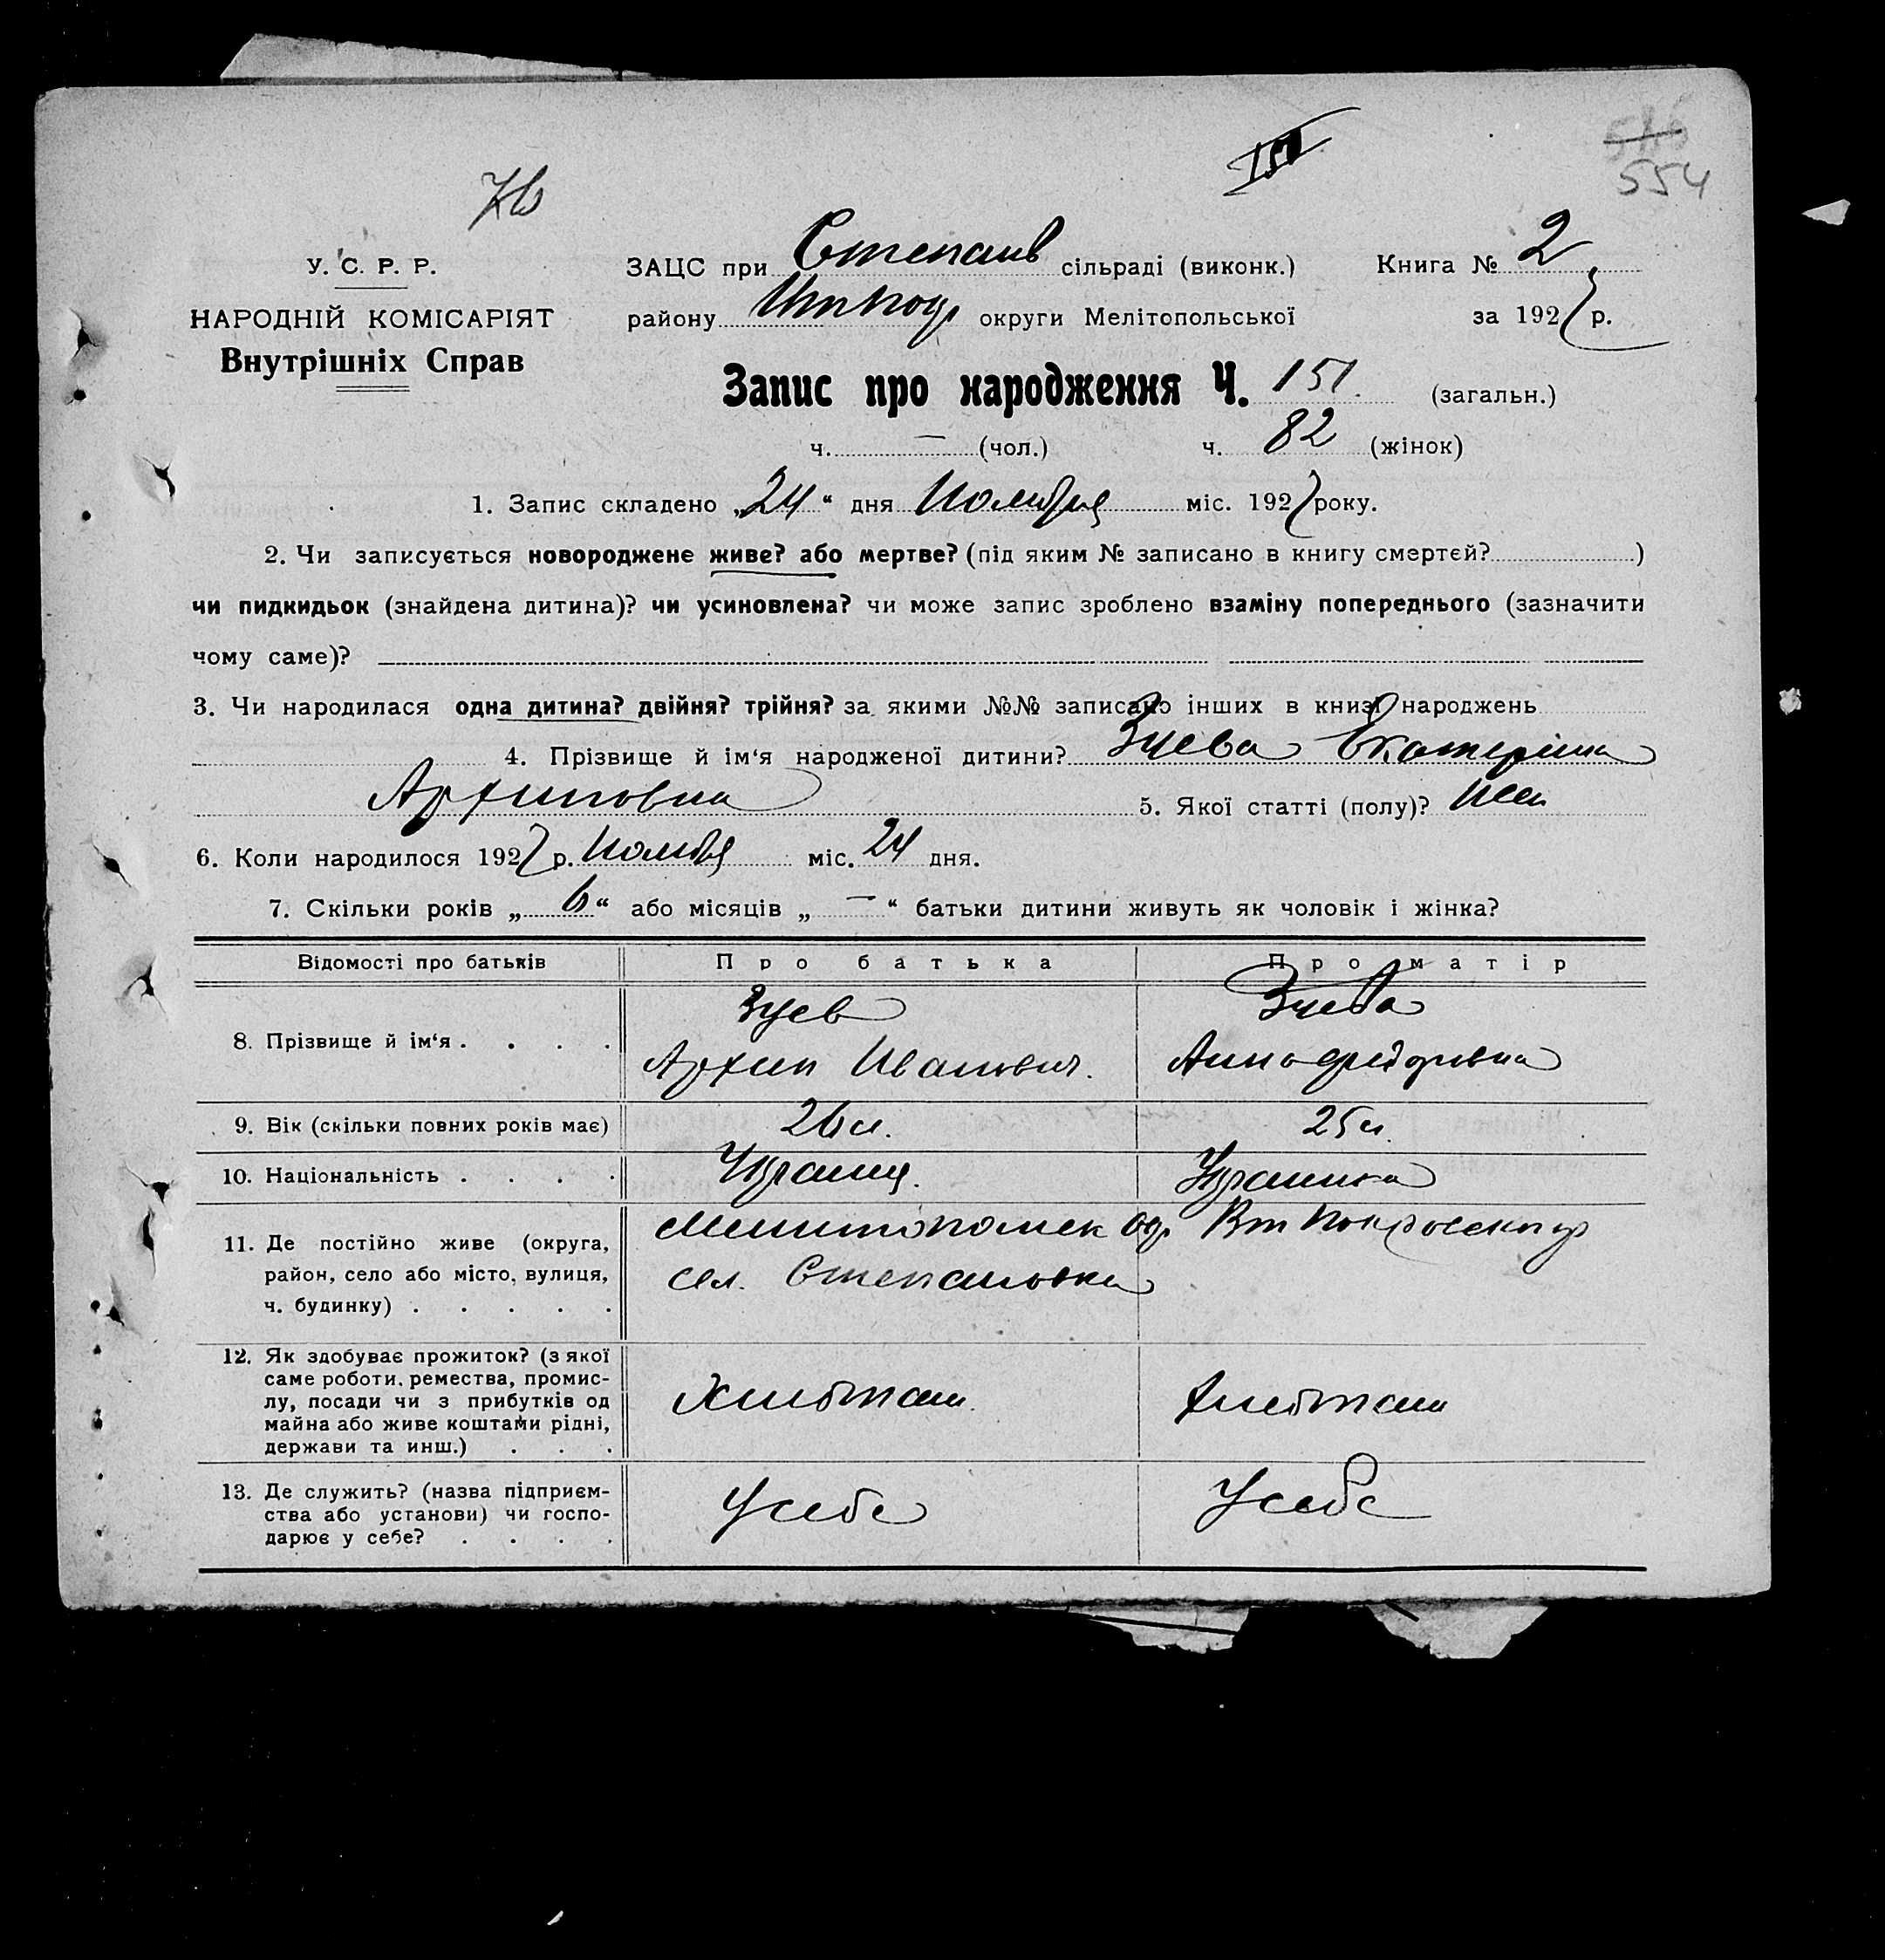 554
76
У. С. Р. Р.
НАРОДНІЙ КОМІСАРІЯТ
Внутрішніх Справ
ЗАЦС при Степанів сільраді (виконк.) Книга № 2
району округи Мелітопольської за 1927 р.
Запис про народження Ч. 151. (загальн.)
ч. — (чол.) ч. 82 (жінок)
1. Запис складено „24“ дня Ноября міс. 1927 року.
2. Чи записується новороджене живе? або мертве? (під яким № записано в книгу смертей? )
чи пидкидьок (знайдена дитина)? чи усиновлена? чи може запис зроблено взаміну попереднього (зазначити
чому саме)?
3. Чи народилася одна дитина? двійня? трійня? за якими №№ записано інших в книзі народжень
4. Прізвище й ім‘я народженої дитини? Зуева Екатеріна
Архиповна 5. Якої статті (полу)? Жен
6. Коли народилося 1927 р. Ноября міс. 24 дня.
7. Скільки років „6“ або місяців „—“ батьки дитини живуть як чоловік і жінка?
Відомості про батьків Про батька Про матір
8. Прізвище й ім‘я . . . . Зуев Архип Иванович. Зуева Анна Федоровна
9. Вік (скільки повних років має) 26 л. 25 л.
10. Національність . . . . Украинц. Украинка
11. Де постійно живе (округа, Мелитопольск окр Вт Покровск р
район, село або місто, вулиця, сел. Степановка
ч. будинку) . . . . .
12. Як здобуває прожиток? (з якої
саме роботи, ремества, промис-
лу, посади чи з прибутків од Хлебопаш. Хлебопаш
майна або живе коштами рідні,
держави та инш.) . . .
13. Де служить? (назва підприєм-
ства або установи) чи госпо- У себе У себе
дарює у себе? . . . .